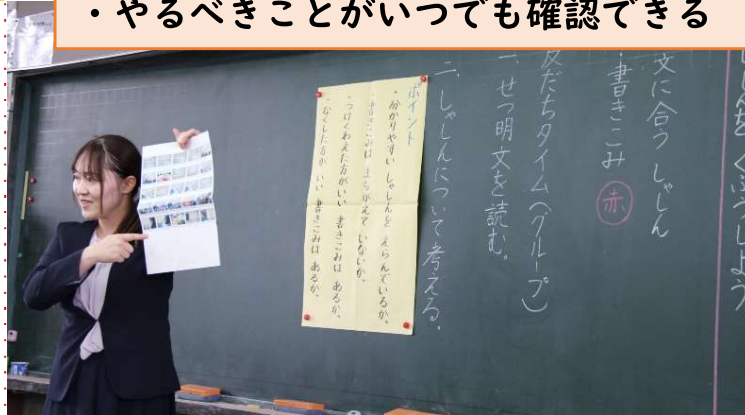 ・やるべきことがいつでも確認できる
くふうしよう
文に合う しゃしん
・書きこみ 赤
友だちタイム(グループ)
一、せつ明文を読む。
二、しゃしんについて考える。
ポイント
・分かりやすい しゃしんを えらんでいるか。
・書きこみは まちがえて いないか。
・つけくわえた方がいい 書きこみは あるか。
・なくした方が いい 書きこみは あるか。